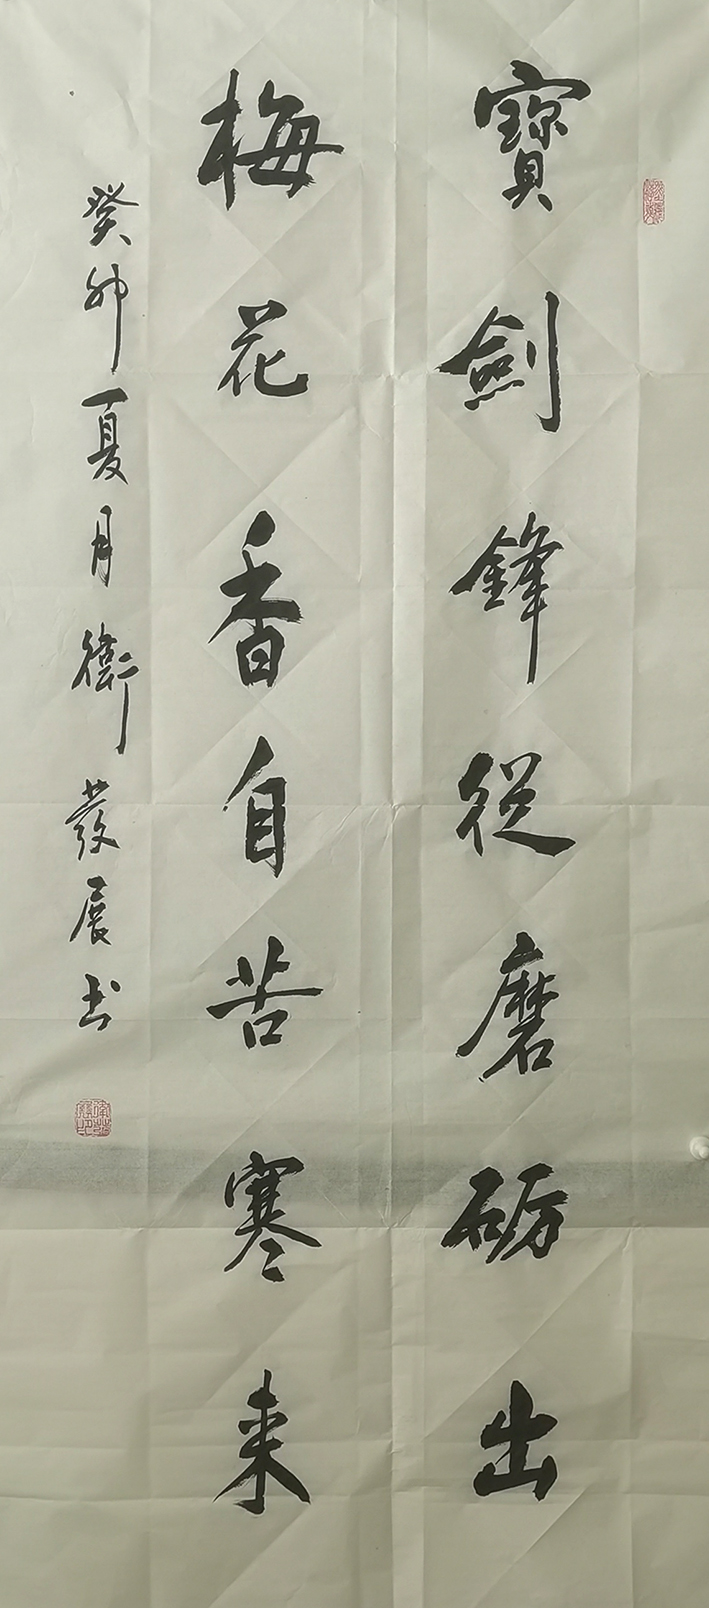 寶劍鋒從磨砺出
梅花香自苦寒来
癸卯夏月衛發展书